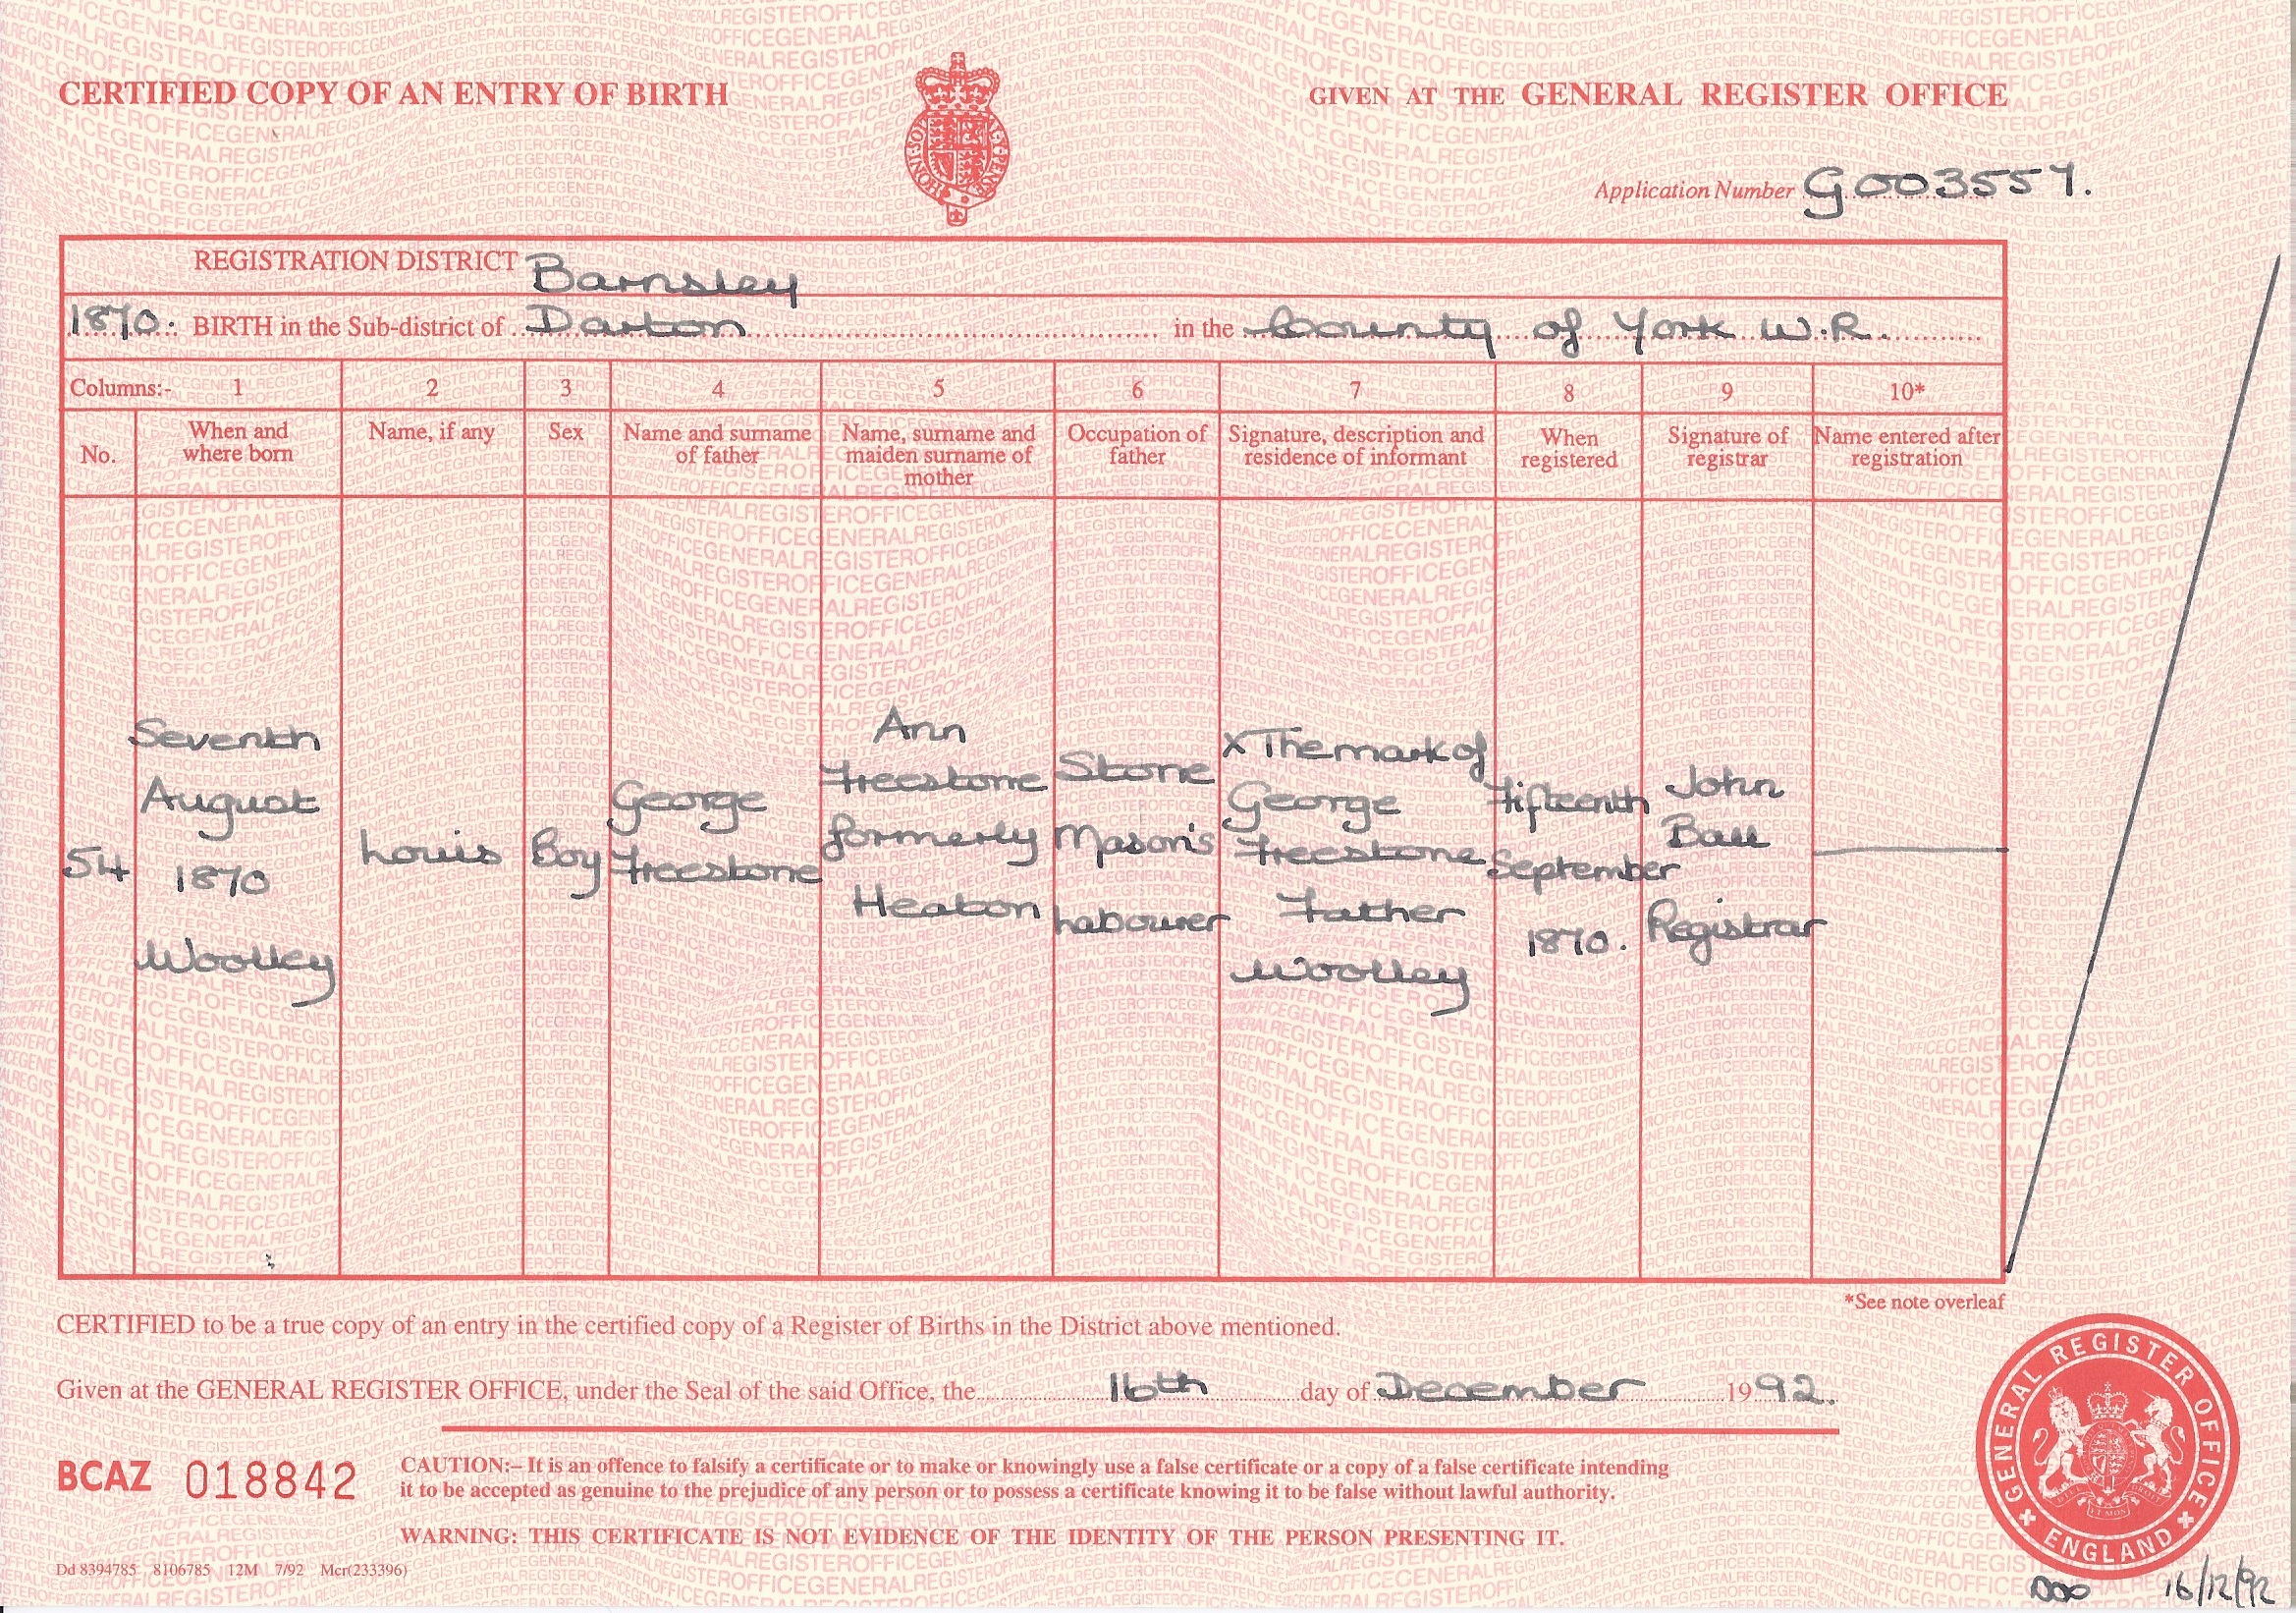 CERTIFIED COPY OF AN ENTRY OF BIRTH
GIVEN AT THE GENERAL REGISTER OFFICE
Application Number G003557.
REGISTRATION DISTRICT Barnsley
1870. BIRTH in the Sub-district of Darton in the County of York W.R.
Columns:- 1 2 3 4 5 6 7 8 9 10*
No.
When and
where born
Name, if any
Sex
Name and surname
of father
Name, surname and
maiden surname of
mother
Occupation of
father
Signature, description and
residence of informant
When
registered
Signature of
registrar
Name entered after
registration
54
Seventh
August
1870
Woolley
Louis
Boy
George
Freestone
Ann
Freestone
formerly
Heaton
Stone
Mason's
Labourer
X The mark of
George
Freestone
Father
Woolley
Fifteenth
September
1870.
John
Ball
Registrar
*See note overleaf
CERTIFIED to be a true copy of an entry in the certified copy of a Register of Births in the District above mentioned.
Given at the GENERAL REGISTER OFFICE, under the Seal of the said Office, the 16th day of December 1992.
BCAZ 018842
CAUTION:– It is an offence to falsify a certificate or to make or knowingly use a false certificate or a copy of a false certificate intending
it to be accepted as genuine to the prejudice of any person or to possess a certificate knowing it to be false without lawful authority.
WARNING: THIS CERTIFICATE IS NOT EVIDENCE OF THE IDENTITY OF THE PERSON PRESENTING IT.
Dd 8394785 8106785 12M 7/92 Mcr(233396)
GENERAL REGISTER OFFICE
ENGLAND
16/12/92